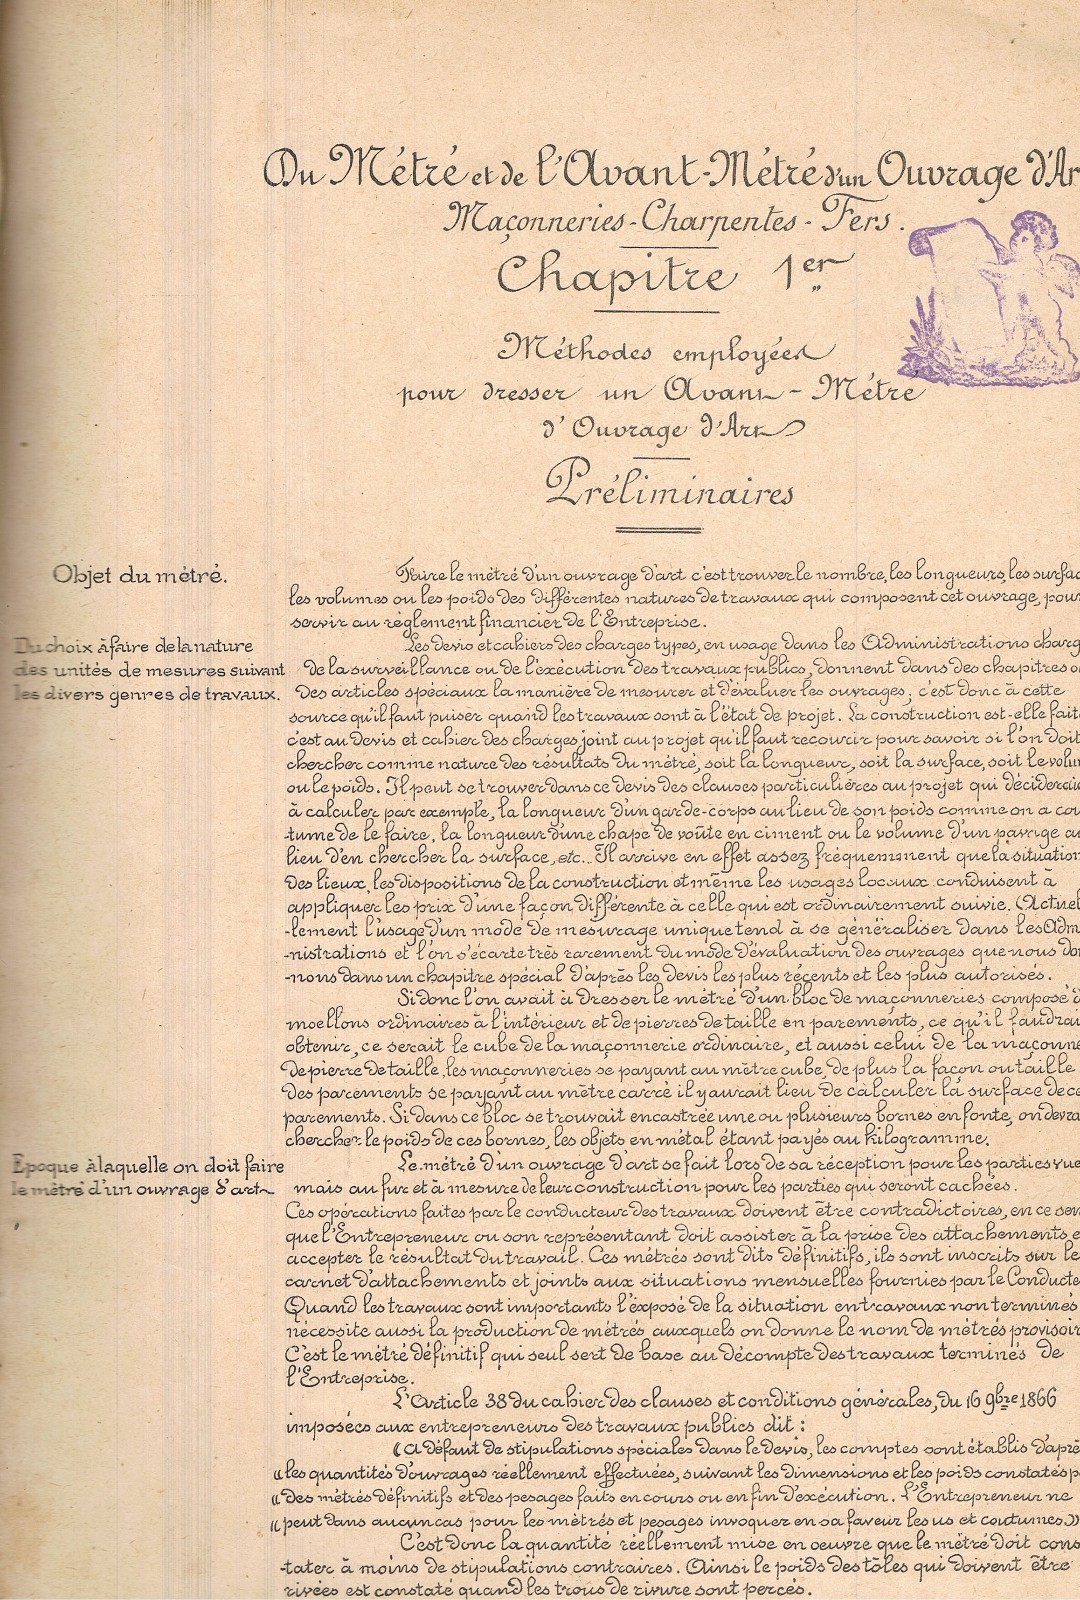 Du Métré et de l'Avant-Métré d'un Ouvrage d'Ar
Maçonneries-Charpentes-Fers.
Chapitre 1er
Méthodes employées
pour dresser un Avant-Métré
d'Ouvrage d'Art
Préliminaires
Objet du métré.
Faire le métré d'un ouvrage d'art c'est trouver le nombre, les longueurs, les surfac
les volumes ou les poids des différentes natures de travaux qui composent cet ouvrage, pour
servir au règlement financier de l'Entreprise.
Du choix à faire de la nature
des unités de mesures suivant
les divers genres de travaux.
Les devis et cahiers des charges types, en usage dans les Administrations charg
de la surveillance ou de l'exécution des travaux publics, donnent dans des chapitres o
des articles spéciaux la manière de mesurer et d'évaluer les ouvrages; c'est donc à cette
source qu'il faut puiser quand les travaux sont à l'état de projet. La construction est-elle faite
c'est au devis et cahier des charges joint au projet qu'il faut recourir pour savoir si l'on doit
chercher comme nature des résultats du métré, soit la longueur, soit la surface, soit le volum
ou le poids. Il peut se trouver dans ce devis des clauses particulières au projet qui décideraie
à calculer par exemple, la longueur d'un garde-corps au lieu de son poids comme on a cou
-tume de le faire, la longueur d'une chape de voûte en ciment ou le volume d'un pavage au
lieu d'en chercher la surface, etc... Il arrive en effet assez fréquemment que la situation
des lieux, les dispositions de la construction et même les usages locaux conduisent à
appliquer les prix d'une façon différente à celle qui est ordinairement suivie. (Actuel
-lement l'usage d'un mode de mesurage unique tend à se généraliser dans les Adm
-nistrations et l'on s'écarte très rarement du mode d'évaluation des ouvrages que nous don
-nons dans un chapitre spécial d'après les devis les plus récents et les plus autorisés.
Si donc l'on avait à dresser le métré d'un bloc de maçonneries composé d
moellons ordinaires à l'intérieur et de pierres de taille en parements, ce qu'il faudrai
obtenir, ce serait le cube de la maçonnerie ordinaire, et aussi celui de la maçonne
de pierre de taille, les maçonneries se payant au mètre cube, de plus la façon ou taille
des parements se payant au mètre carré il y aurait lieu de calculer la surface de ce
parements. Si dans ce bloc se trouvait encastrée une ou plusieurs bornes en fonte, on devra
chercher le poids de ces bornes, les objets en métal étant payés au kilogramme.
Epoque à laquelle on doit faire
le métré d'un ouvrage d'art
Le métré d'un ouvrage d'art se fait lors de sa réception pour les parties vue
mais au fur et à mesure de leur construction pour les parties qui seront cachées.
Ces opérations faites par le conducteur des travaux doivent être contradictoires, en ce sen
que l'Entrepreneur ou son représentant doit assister à la prise des attachements e
accepter le résultat du travail. Ces métrés sont dits définitifs, ils sont inscrits sur le
carnet d'attachements et joints aux situations mensuelles fournies par le Conducte
Quand les travaux sont importants l'exposé de la situation en travaux non terminés
nécessite aussi la production de métrés auxquels on donne le nom de métrés provisoir
C'est le métré définitif qui seul sert de base au décompte des travaux terminés de
l'Entreprise.
L'Article 38 du cahier des clauses et conditions générales, du 16 9bre 1866
imposées aux entrepreneurs des travaux publics dit:
(A défaut de stipulations spéciales dans le devis, les comptes sont établis d'aprè
«les quantités d'ouvrages réellement effectuées, suivant les dimensions et les poids constatés p
«des métrés définitifs et des pesages faits en cours ou en fin d'exécution. L'Entrepreneur ne
«peut dans aucun cas pour les métrés et pesages invoquer en sa faveur les us et coutumes.»
C'est donc la quantité réellement mise en oeuvre que le métré doit cons
-tater à moins de stipulations contraires. Ainsi le poids des tôles qui doivent être
rivées est constaté quand les trous de rivure sont percés.